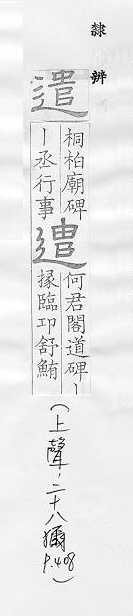 隸辨
遣
桐柏廟碑
丨丞行事
遣
何君閣道碑丨
掾臨卭舒鮪
(上聲,二十八獮
P.408)